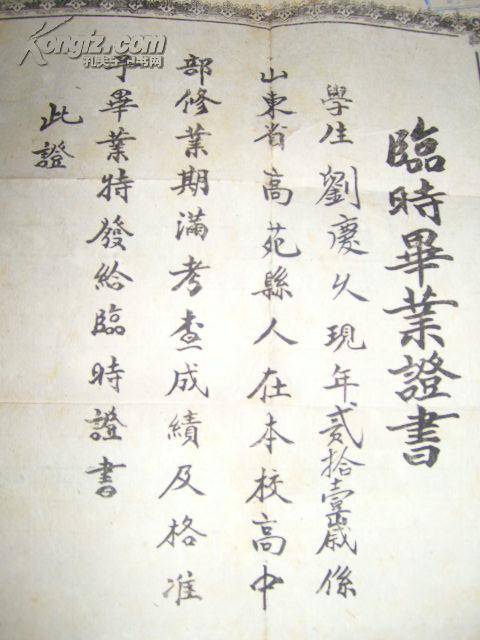 臨時畢業證書
學生劉慶久現年貳拾壹歲係
山東省高苑縣人在本校高中
部修業期滿考查成績及格准
予畢業特發給臨時證書
此證
Kongfz.com
孔夫子旧书网